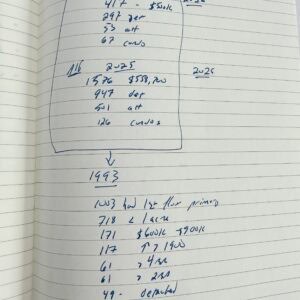 417 - $500K
297 det
53 att
67 condos
2025
1576 $558,700
947 det
501 att
126 condos
2025
1993
1003 had 1st floor primary
718 < 1 acre
171 $600K - $900K
117 ↑ > 1900
61 > 4
61 > 2
49 - detached